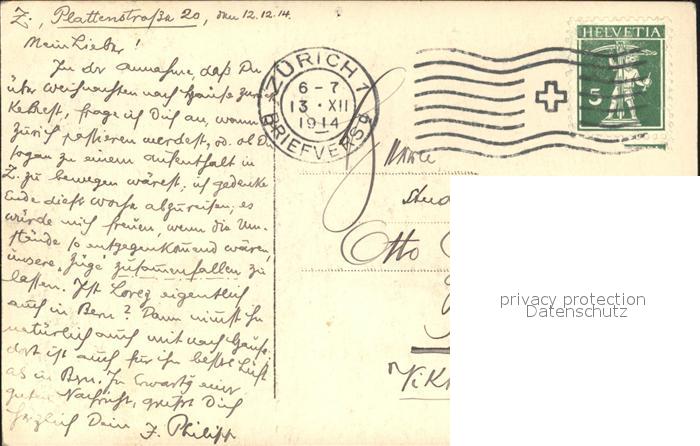 Z., Plattenstraße 20, den 12.12.14.
Mein Lieber!
In der Annahme, daß Du
über Weihnachten nach Hause zurück-
kehrst, frage ich Dich an, wann
Zürich passieren werdest, od. ob D
sogar zu einem Aufenthalt in
Z. zu bewegen wärest; ich gedenke
Ende dieser Woche abzureisen; es
würde mich freuen, wenn die Um-
stände so entgegenkommend wären,
unsere „Züge" zusammenfallen zu
lassen. Ist Lorez eigentlich
auch in Bern? Dann nimmst ihn
natürlich auch mit nach Hause,
dort ist auch für ihn bessre Luft
als in Bern. In Erwartg einer
guten Nachricht, grüßt Dich
herzlich Dein J. Philipp
ZÜRICH 7
6-7
13·XII
1914
BRIEFVERS
HELVETIA
5
Stud
Otto
privacy protection
Datenschutz